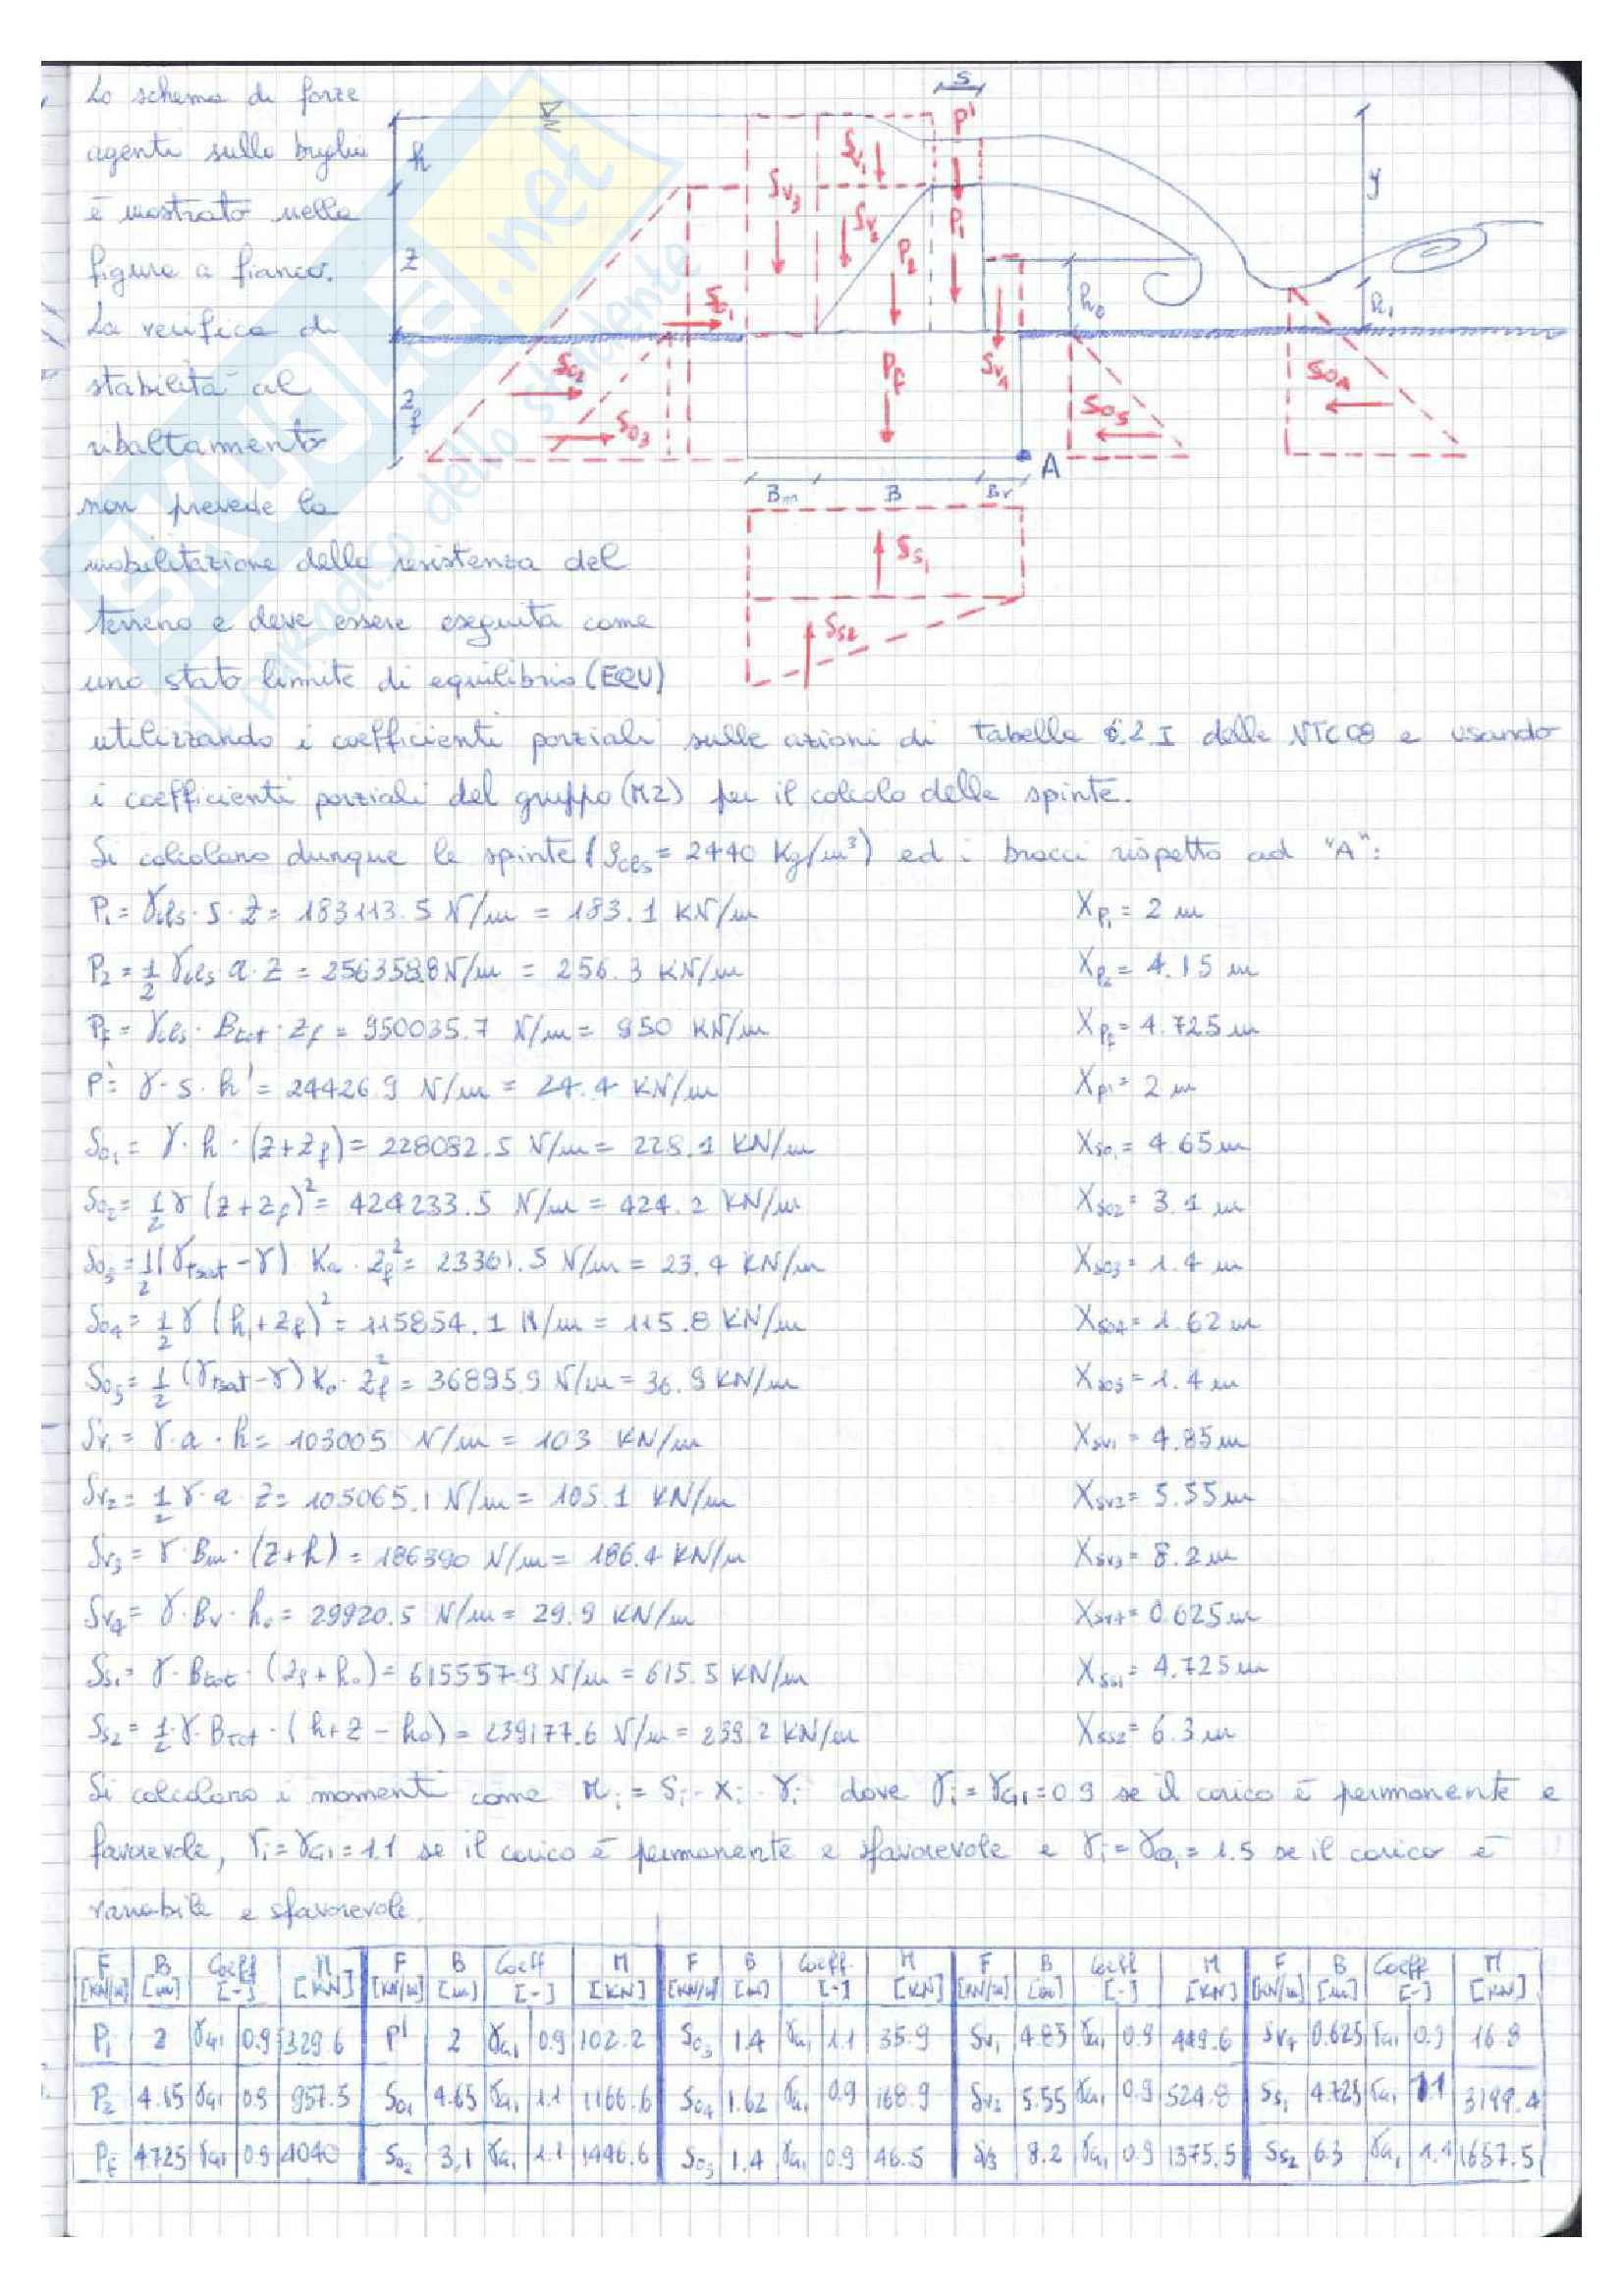 Lo schema di forze
agenti sulla briglia
è mostrato nella
figura a fianco.
La verifica di
stabilità al
ribaltamento
non prevede la
mobilitazione della resistenza del
terreno e deve essere eseguita come
uno stato limite di equilibrio (EQU)
s
P'
h
y
Sv1
Sv3
Sv2
P1
P2
z
So1
h0
h1
So2
zf
Pf
Sv4
So5
So4
So3
A
Bm B Bv
Ss1
Ss2
SKUOLA.net
il paradiso dello studente
utilizzando i coefficienti parziali sulle azioni di tabella 6.2.I delle NTC08 e usando
i coefficienti parziali del gruppo (M2) per il calcolo delle spinte.
Si calcolano dunque le spinte (ρcls = 2440 Kg/m³) ed i bracci rispetto ad "A":
P1 = γcls · s · z = 183113.5 N/m = 183.1 KN/m XP1 = 2 m
P2 = 1/2 γcls a · z = 256358.8 N/m = 256.3 KN/m XP2 = 4.15 m
Pf = γcls · Btot · zf = 950035.7 N/m = 950 KN/m XPf = 4.725 m
P' = γ · s · h' = 24426.9 N/m = 24.4 KN/m XP' = 2 m
So1 = γ · h · (z+zf) = 228082.5 N/m = 228.1 KN/m XSo1 = 4.65 m
So2 = 1/2 γ (z+zf)² = 424233.5 N/m = 424.2 KN/m XSo2 = 3.1 m
So3 = 1/2 (γtsat - γ) Ka · zf² = 23361.5 N/m = 23.4 KN/m XSo3 = 1.4 m
So4 = 1/2 γ (h1+zf)² = 115854.1 N/m = 115.8 KN/m XSo4 = 1.62 m
So5 = 1/2 (γtsat - γ) Ko · zf² = 36895.9 N/m = 36.9 KN/m XSo5 = 1.4 m
Sv1 = γ · a · h = 103005 N/m = 103 KN/m XSv1 = 4.85 m
Sv2 = 1/2 γ · a · z = 105065.1 N/m = 105.1 KN/m XSv2 = 5.55 m
Sv3 = γ · Bm · (z+h) = 186390 N/m = 186.4 KN/m XSv3 = 8.2 m
Sv4 = γ · Bv · h0 = 29920.5 N/m = 29.9 KN/m XSv4 = 0.625 m
Ss1 = γ · Btot · (zf+h0) = 615557.9 N/m = 615.5 KN/m XSs1 = 4.725 m
Ss2 = 1/2 · γ · Btot · (h+z-h0) = 239177.6 N/m = 239.2 KN/m XSs2 = 6.3 m
Si calcolano i momenti come Mi = Si · Xi · γi dove γi = γG1 = 0.9 se il carico è permanente e
favorevole, γi = γG1 = 1.1 se il carico è permanente e sfavorevole e γi = γQ1 = 1.5 se il carico è
variabile e sfavorevole.
F B Coeff M F B Coeff M F B Coeff. M F B Coeff M F B Coeff M
[KN/m] [m] [-] [KN] [KN/m] [m] [-] [KN] [KN/m] [m] [-] [KN] [KN/m] [m] [-] [KN] [KN/m] [m] [-] [KN]
P1 2 γG1 0.9 329.6 P' 2 γG1 0.9 102.2 So3 1.4 γG1 1.1 35.9 Sv1 4.85 γG1 0.9 449.6 Sv4 0.625 γG1 0.9 16.8
P2 4.15 γG1 0.9 957.5 So1 4.65 γG1 1.1 1166.6 So4 1.62 γG1 0.9 168.9 Sv2 5.55 γG1 0.9 524.8 Ss1 4.725 γG1 1.1 3199.4
Pf 4.725 γG1 0.9 4040 So2 3.1 γG1 1.1 1446.6 So5 1.4 γG1 0.9 46.5 Sv3 8.2 γG1 0.9 1375.5 Ss2 6.3 γG1 1.1 1657.5